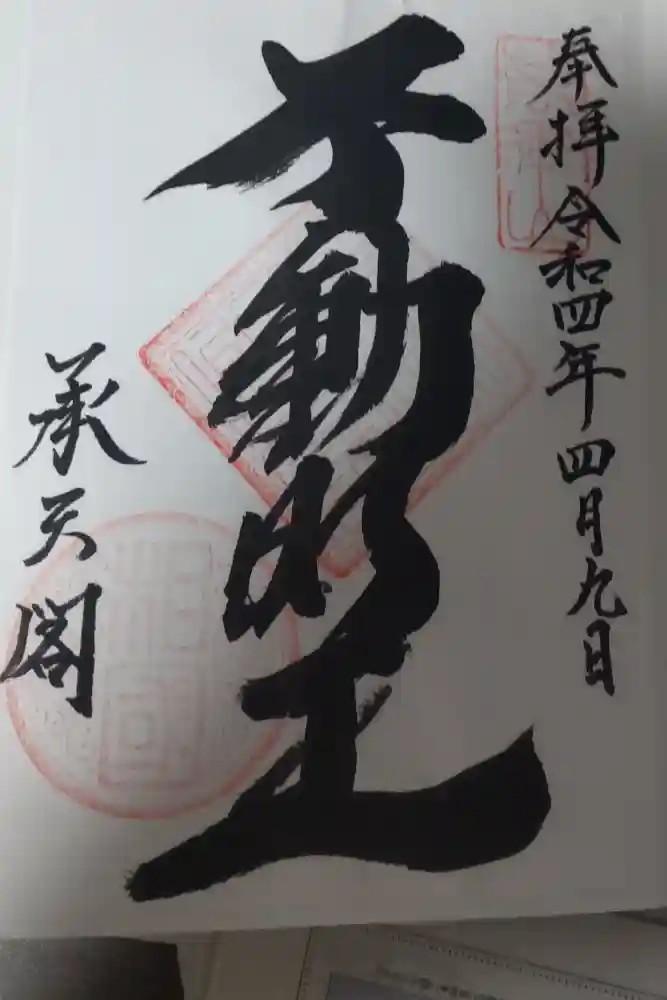 奉拝 令和四年四月九日
不動明王
承天閣